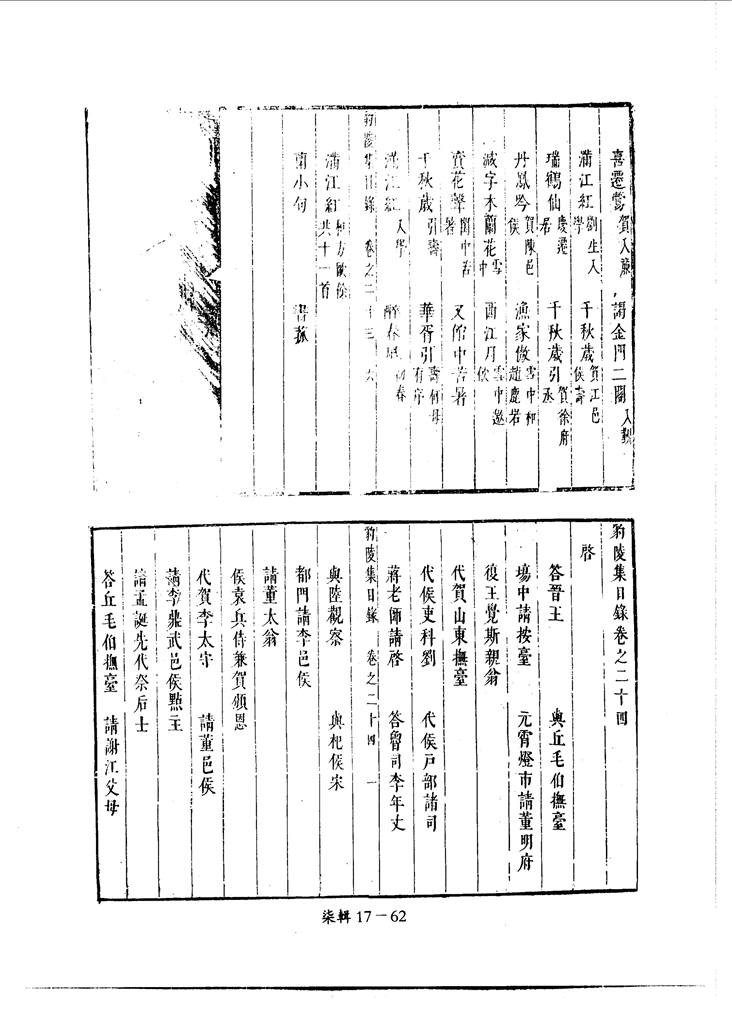 喜遷鶯賀入簾　謁金門二闋入覲
滿江紅劉生入學　千秋歲賀江邑侯壽
瑞鶴仙慶遷君　千秋歲引賀徐府丞
丹鳳吟賀陳邑侯　漁家傲雪中和趙鹿若
減字木蘭花雪中　西江月雪中邀飲
賣花聲閣中苦暑　又館中苦暑
千秋歲引壽　華胥引壽何母有序
滿江紅入學　醉春風初春
豹陵集目錄　卷之二十三　六
滿江紅　共十一首
蘭小句　書蔡
豹陵集目錄卷之二十四
啓
答晉王　與丘毛伯撫臺
場中請按臺　元宵燈市請董明府
復王覺斯親翁
代賀山東撫臺
代侯吏科劉　代侯戸部諸司
蔣老師請啓　答曾司李年丈
豹陵集目錄　卷之二十四　一
與陸觀察　與杞侯宋
都門請李邑侯
請董太翁
侯袁兵侍兼賀頒恩
代賀李太守　請董邑侯
請李鼎武邑侯點主
請孟誕先代祭后土
答丘毛伯撫臺　請謝江父母
柒輯 17－62